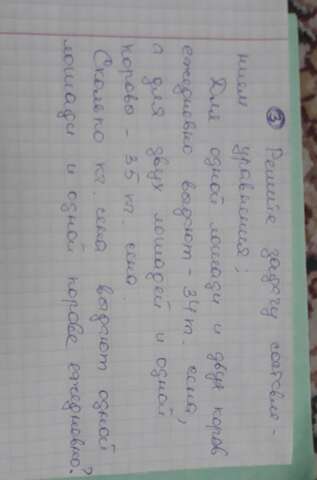 ③ Решите задачу составле-
нием уравнения:
Для одной лошади и двух коров
ежедневно выдают - 34 кг. сена,
а для двух лошадей и одной
коровы - 35 кг. сена.
Сколько кг. сена выдают одной
лошади и одной корове ежедневно?